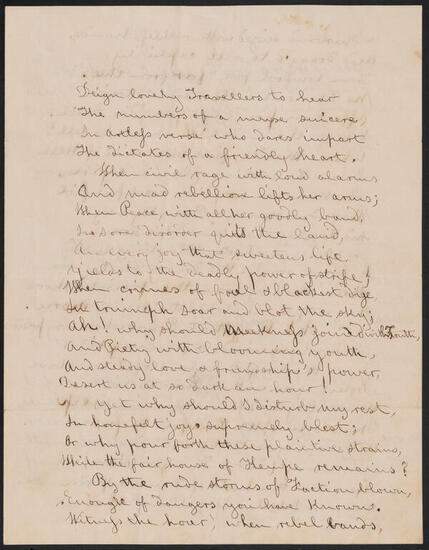 Deign lovely Travellers to hear
The numbers of a muse sincere
In artless verse who dares impart
The dictates of a friendly heart.
When civil rage with loud alarms
And mad rebellion lifts her arms;
When Peace with all her goodly band,
In sore disorder quits the land,
An every joy that sweetens life
Yields to the deadly power of strife;
When crimes of foul & blackest dye
In triumph soar and blot the sky;
Ah! why should Meekness join'd with Truth,
And Piety with blooming youth,
And steady love & friendship's power
Desert us at so dark an hour!
Yet why should I disturb my rest,
In homefelt joys supremely blest;
Or why pour forth these plaintive strains,
While the fair house of Kempe remains?
By the rude storms of Faction blown,
Enough of dangers you have known.
Witness the hour, when rebel bands,